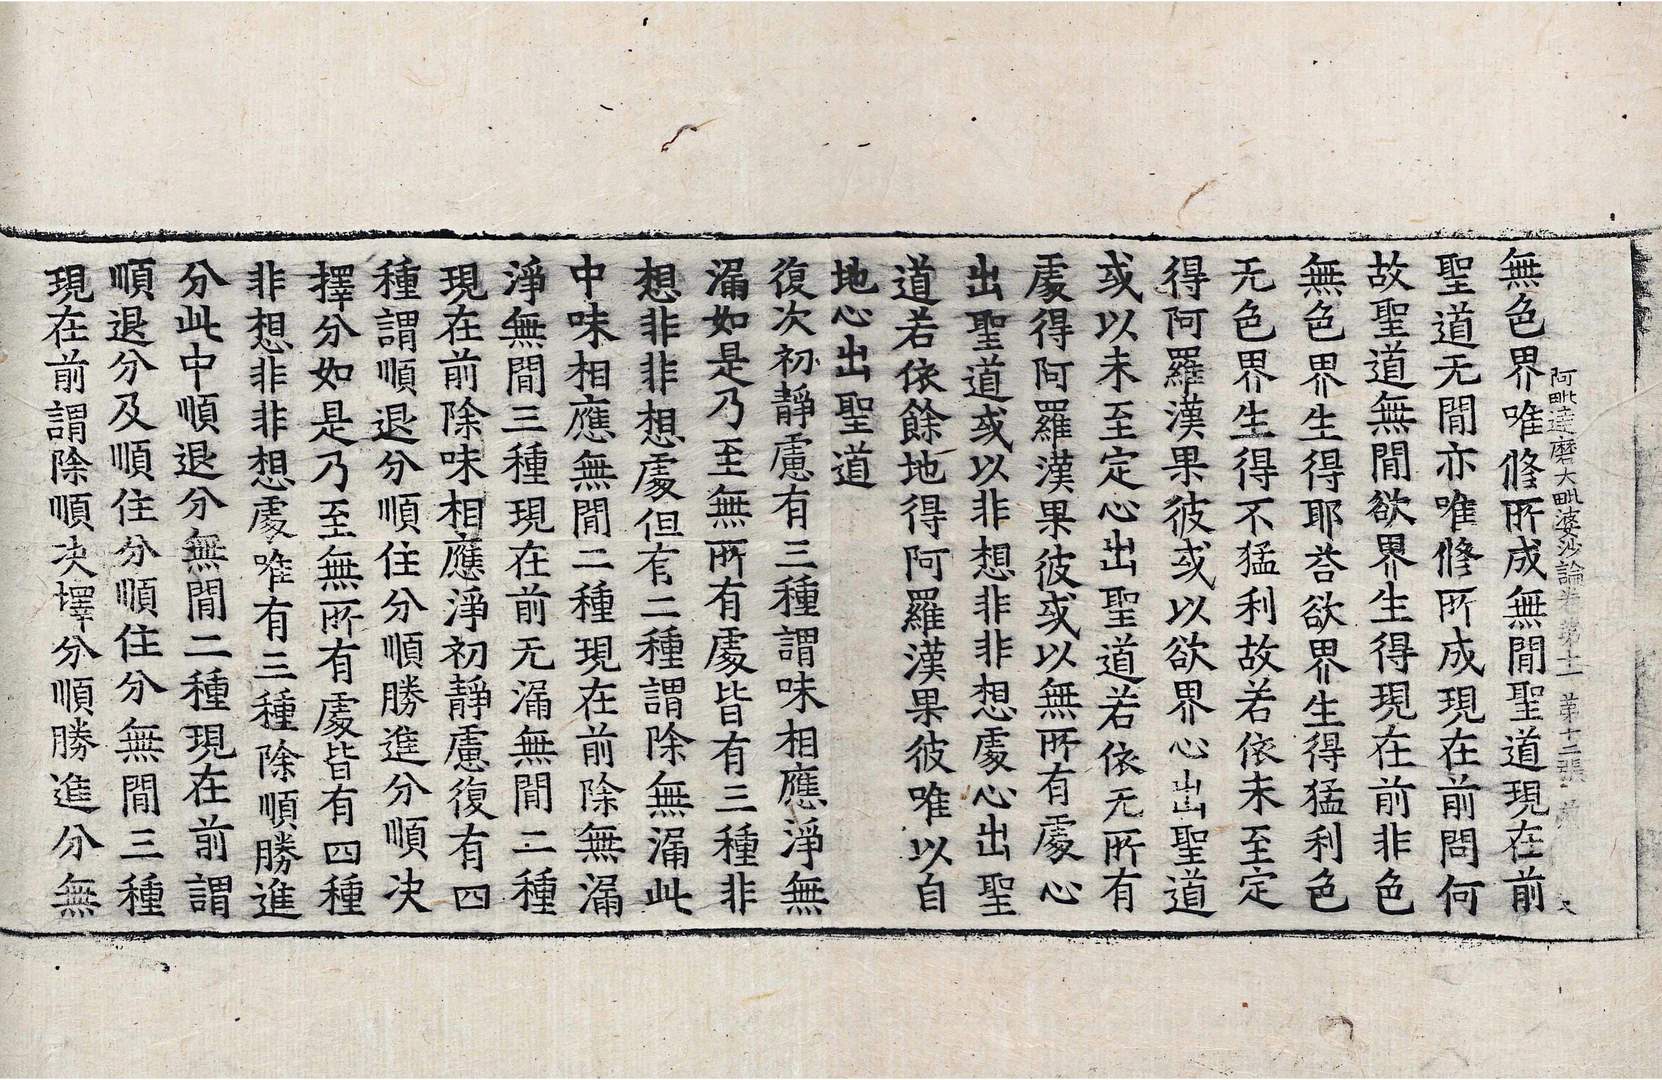 阿毗達磨大毗婆沙論卷第十一 第十二張
無色界唯修所成無閒聖道現在前
聖道无閒亦唯修所成現在前問何
故聖道無閒欲界生得現在前非色
無色界生得耶荅欲界生得猛利色
无色界生得不猛利故若依未至定
得阿羅漢果彼或以欲界心出聖道
或以未至定心出聖道若依无所有
處得阿羅漢果彼或以無所有處心
出聖道或以非想非非想處心出聖
道若依餘地得阿羅漢果彼唯以自
地心出聖道
復次初靜慮有三種謂味相應淨無
漏如是乃至無所有處皆有三種非
想非非想處但有二種謂除無漏此
中味相應無閒二種現在前除無漏
淨無閒三種現在前无漏無閒二種
現在前除味相應淨初靜慮復有四
種謂順退分順住分順勝進分順决
擇分如是乃至無所有處皆有四種
非想非非想處唯有三種除順勝進
分此中順退分無閒二種現在前謂
順退分及順住分順住分無閒三種
現在前謂除順决擇分順勝進分無